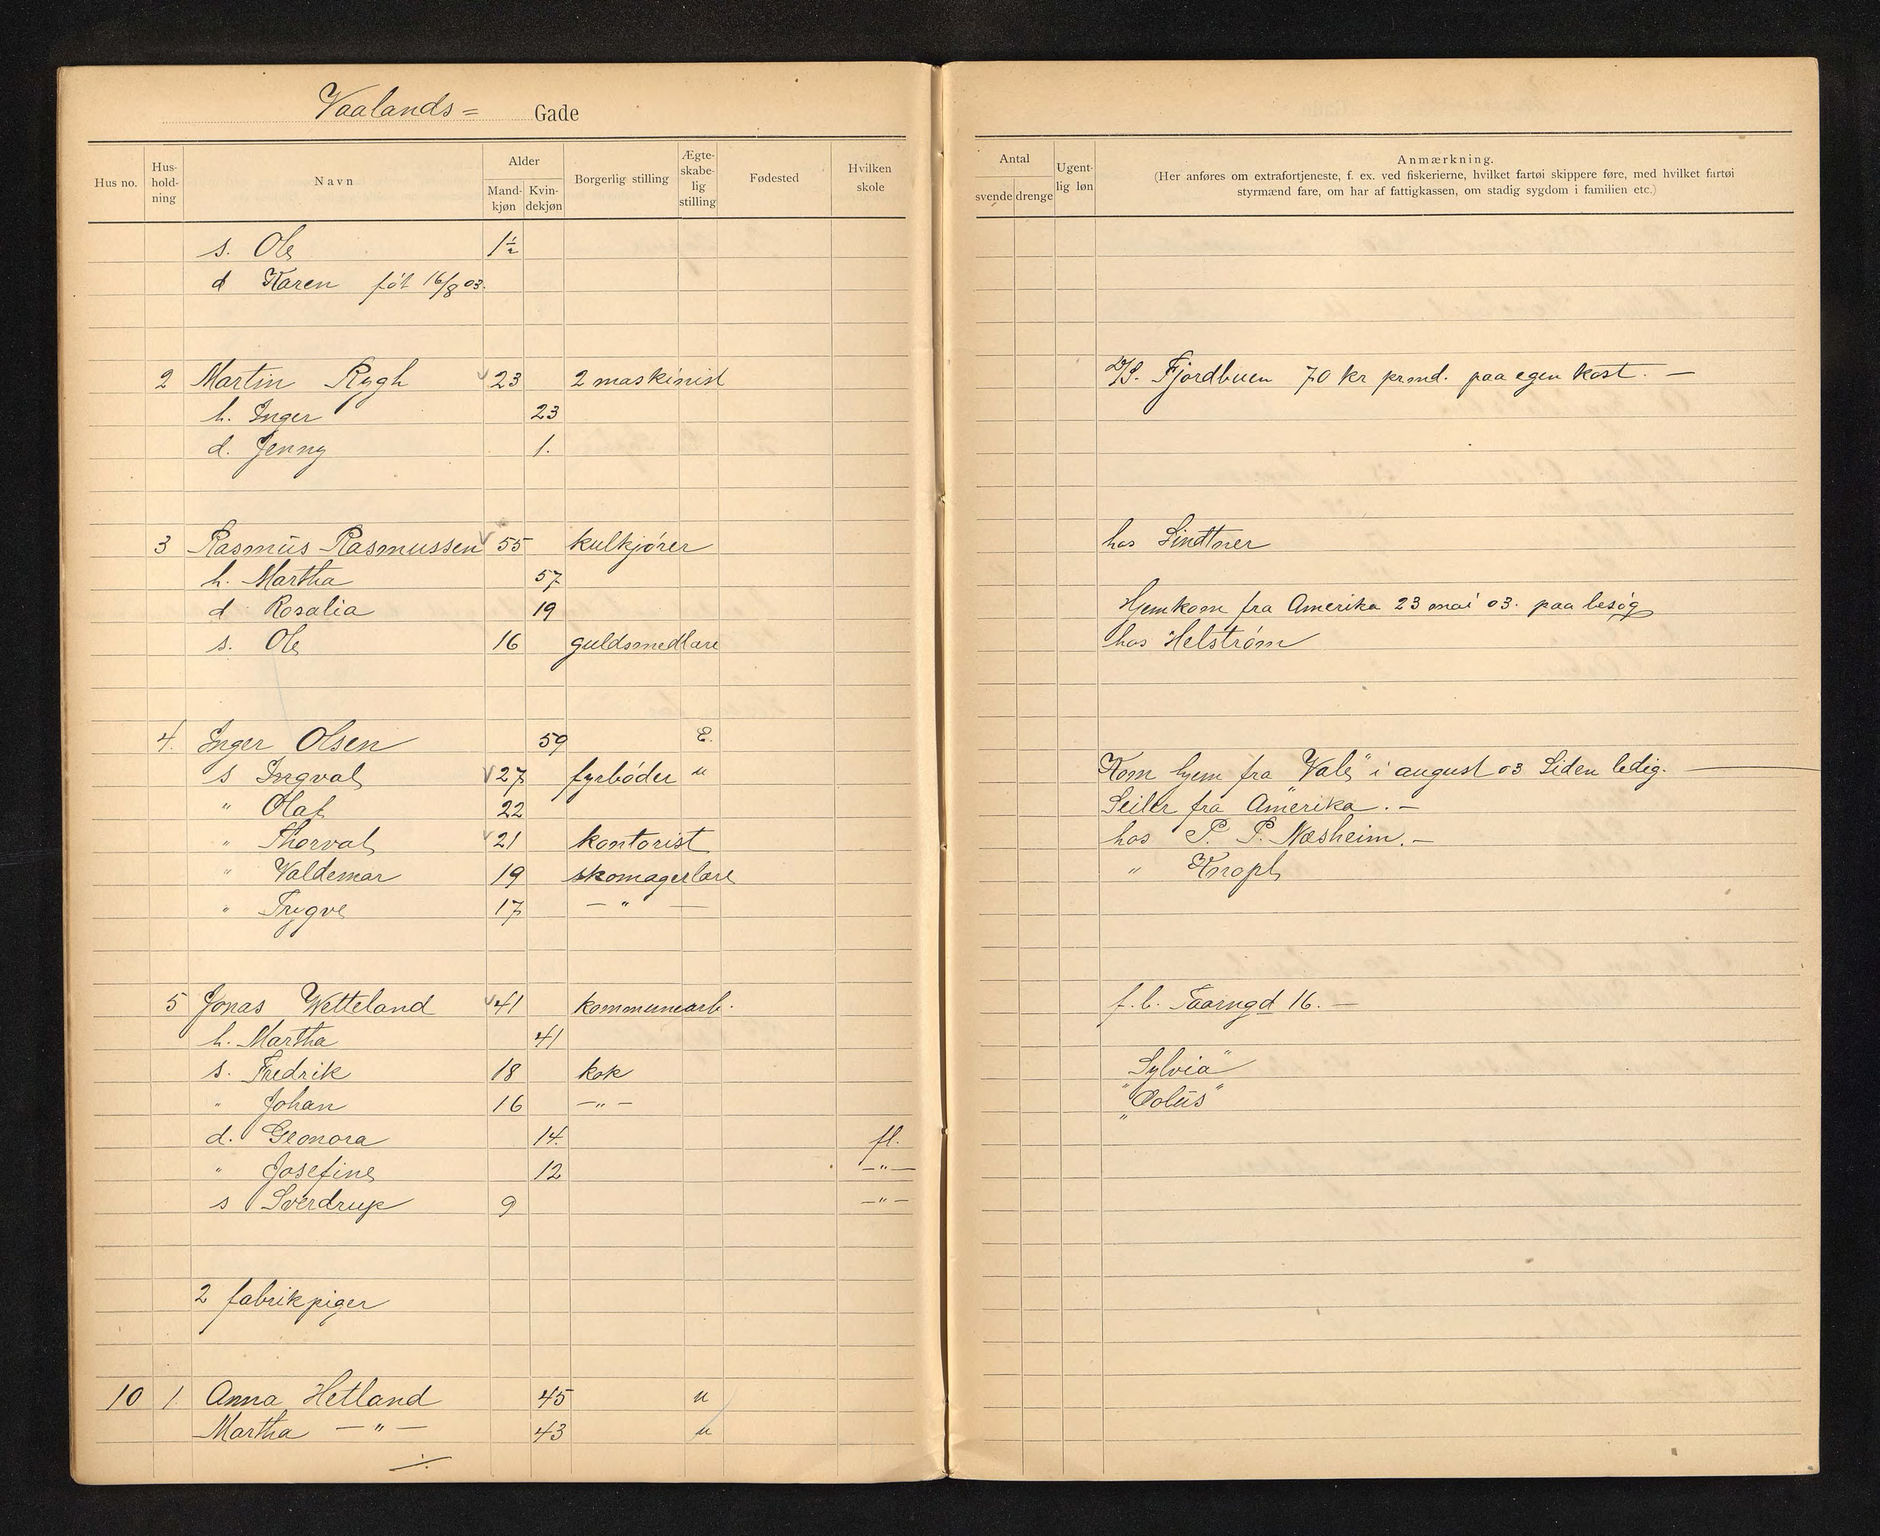 Vaalands= Gade
Hus no. Hus-hold-ning Navn Alder Mand-kjøn Kvin-dekjøn Borgerlig stilling Ægte-skabe-lig stilling Fødested Hvilken skole
Antal svende drenge Ugent-lig løn Anmærkning.
(Her anføres om extrafortjeneste, f. ex. ved fiskerierne, hvilket fartøi skippere føre, med hvilket fartøi
styrmænd fare, om har af fattigkassen, om stadig sygdom i familien etc.)
s. Ole 1½
d Karen føt 16/8 03.
2 Martin Rygh 23 2 maskinist D/S. Fjordbuen 70 kr prmd. paa egen kost. —
h. Inger 23
d. Jenny 1.
3 Rasmus Rasmussen 55 kulkjører hos Lindtner
h. Martha 57
d Rosalia 19 Hjemkom fra Amerika 23 mai 03. paa besøg
s. Ole 16 guldsmedlære hos Helstrøm
4. Inger Olsen 59 E.
s Ingval 27 fyrbøder u Kom hjem fra "Vale" i august 03 Siden ledig. —
" Olaf 22 Seiler fra Amerika. —
" Thorval 21 kontorist hos P. P. Næsheim. —
" Valdemar 19 skomagerlære " Knoph
" Trygve 17 — " —
5 Jonas Wetteland 41 kommunearb. f. b. Taarngd 16. —
h. Martha 41
s. Fredrik 18 kok "Sylvia"
" Johan 16 — " — "Eolus"
d. Eleonora 14. fl.
" Josefine 12 — " —
s Sverdrup 9 — " —
2 fabrikpiger
10 1 Anna Hetland 45 u
Martha — " — 43 u